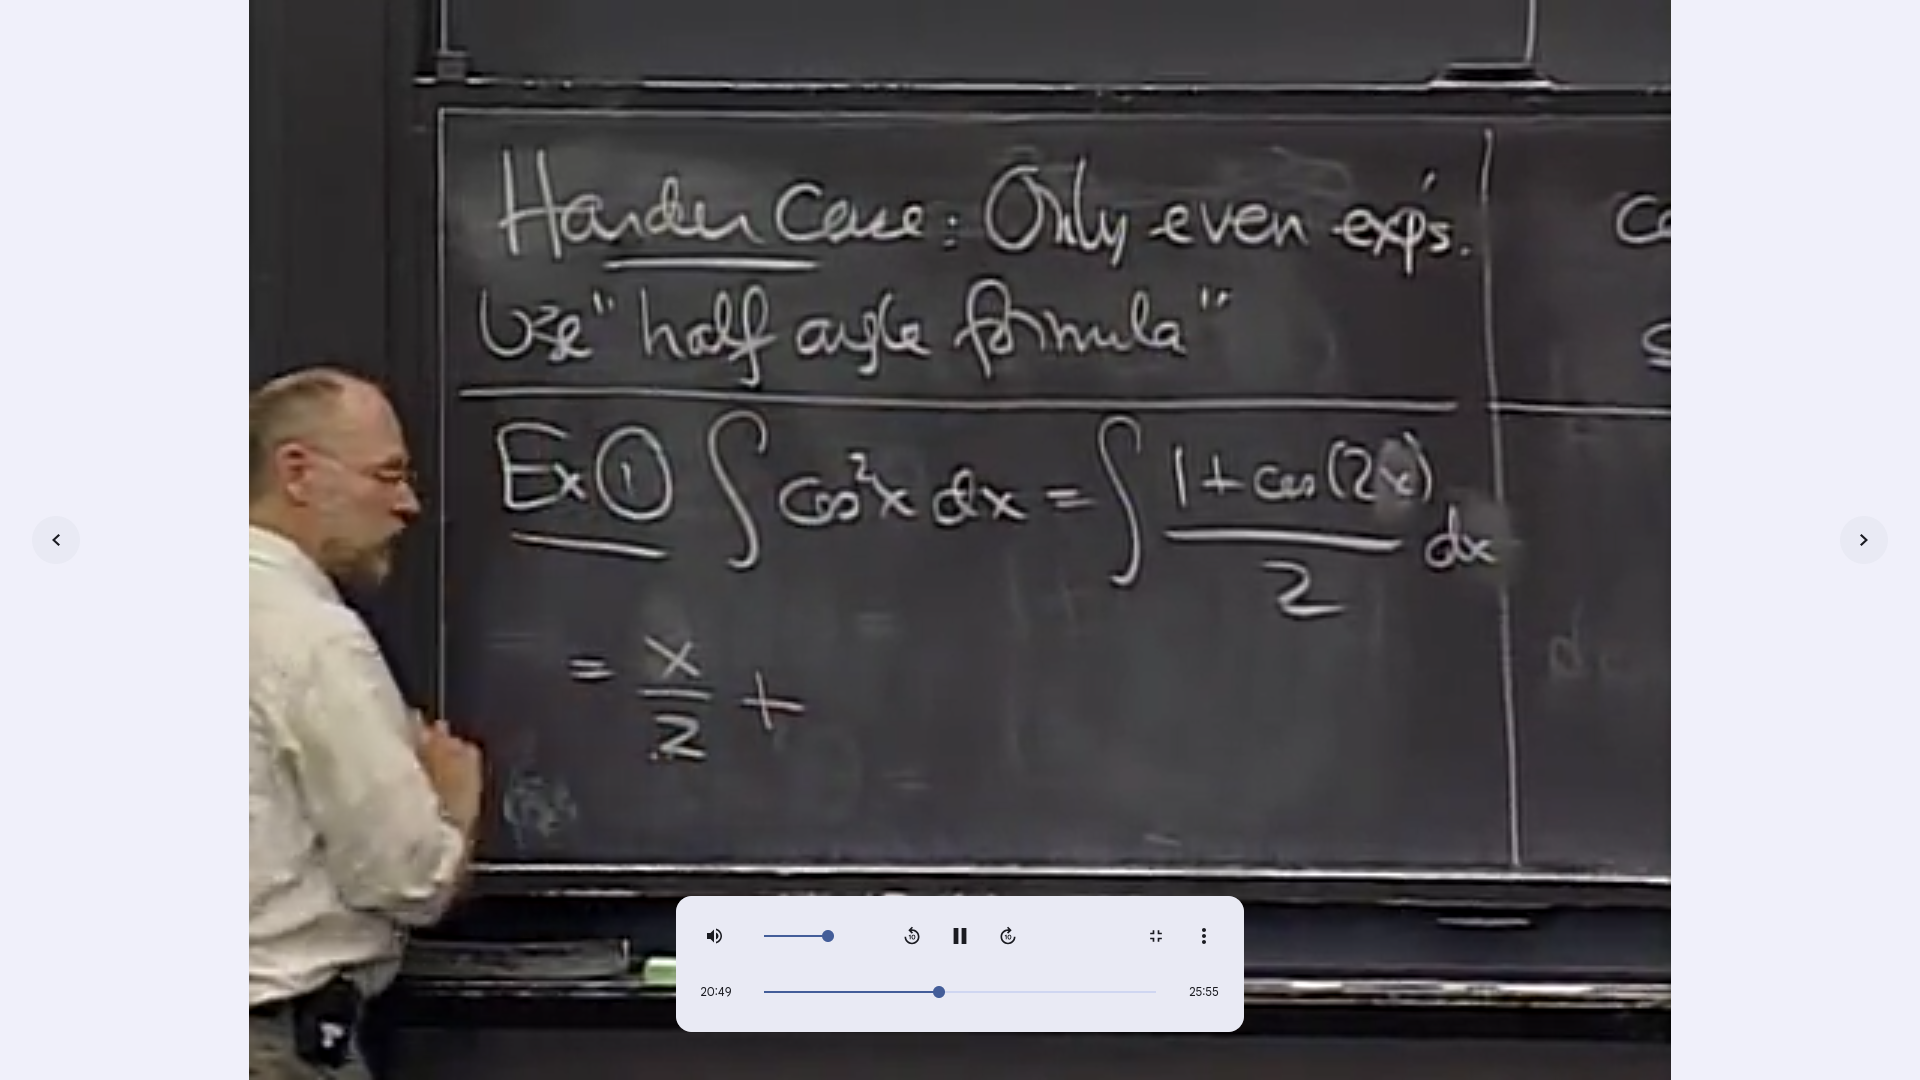 Harder Case: Only even exp's.
Use "half angle formula"
Ex ① ∫ cos²x dx = ∫ (1 + cos(2x))/2 dx
= x/2 +
20:49
25:55